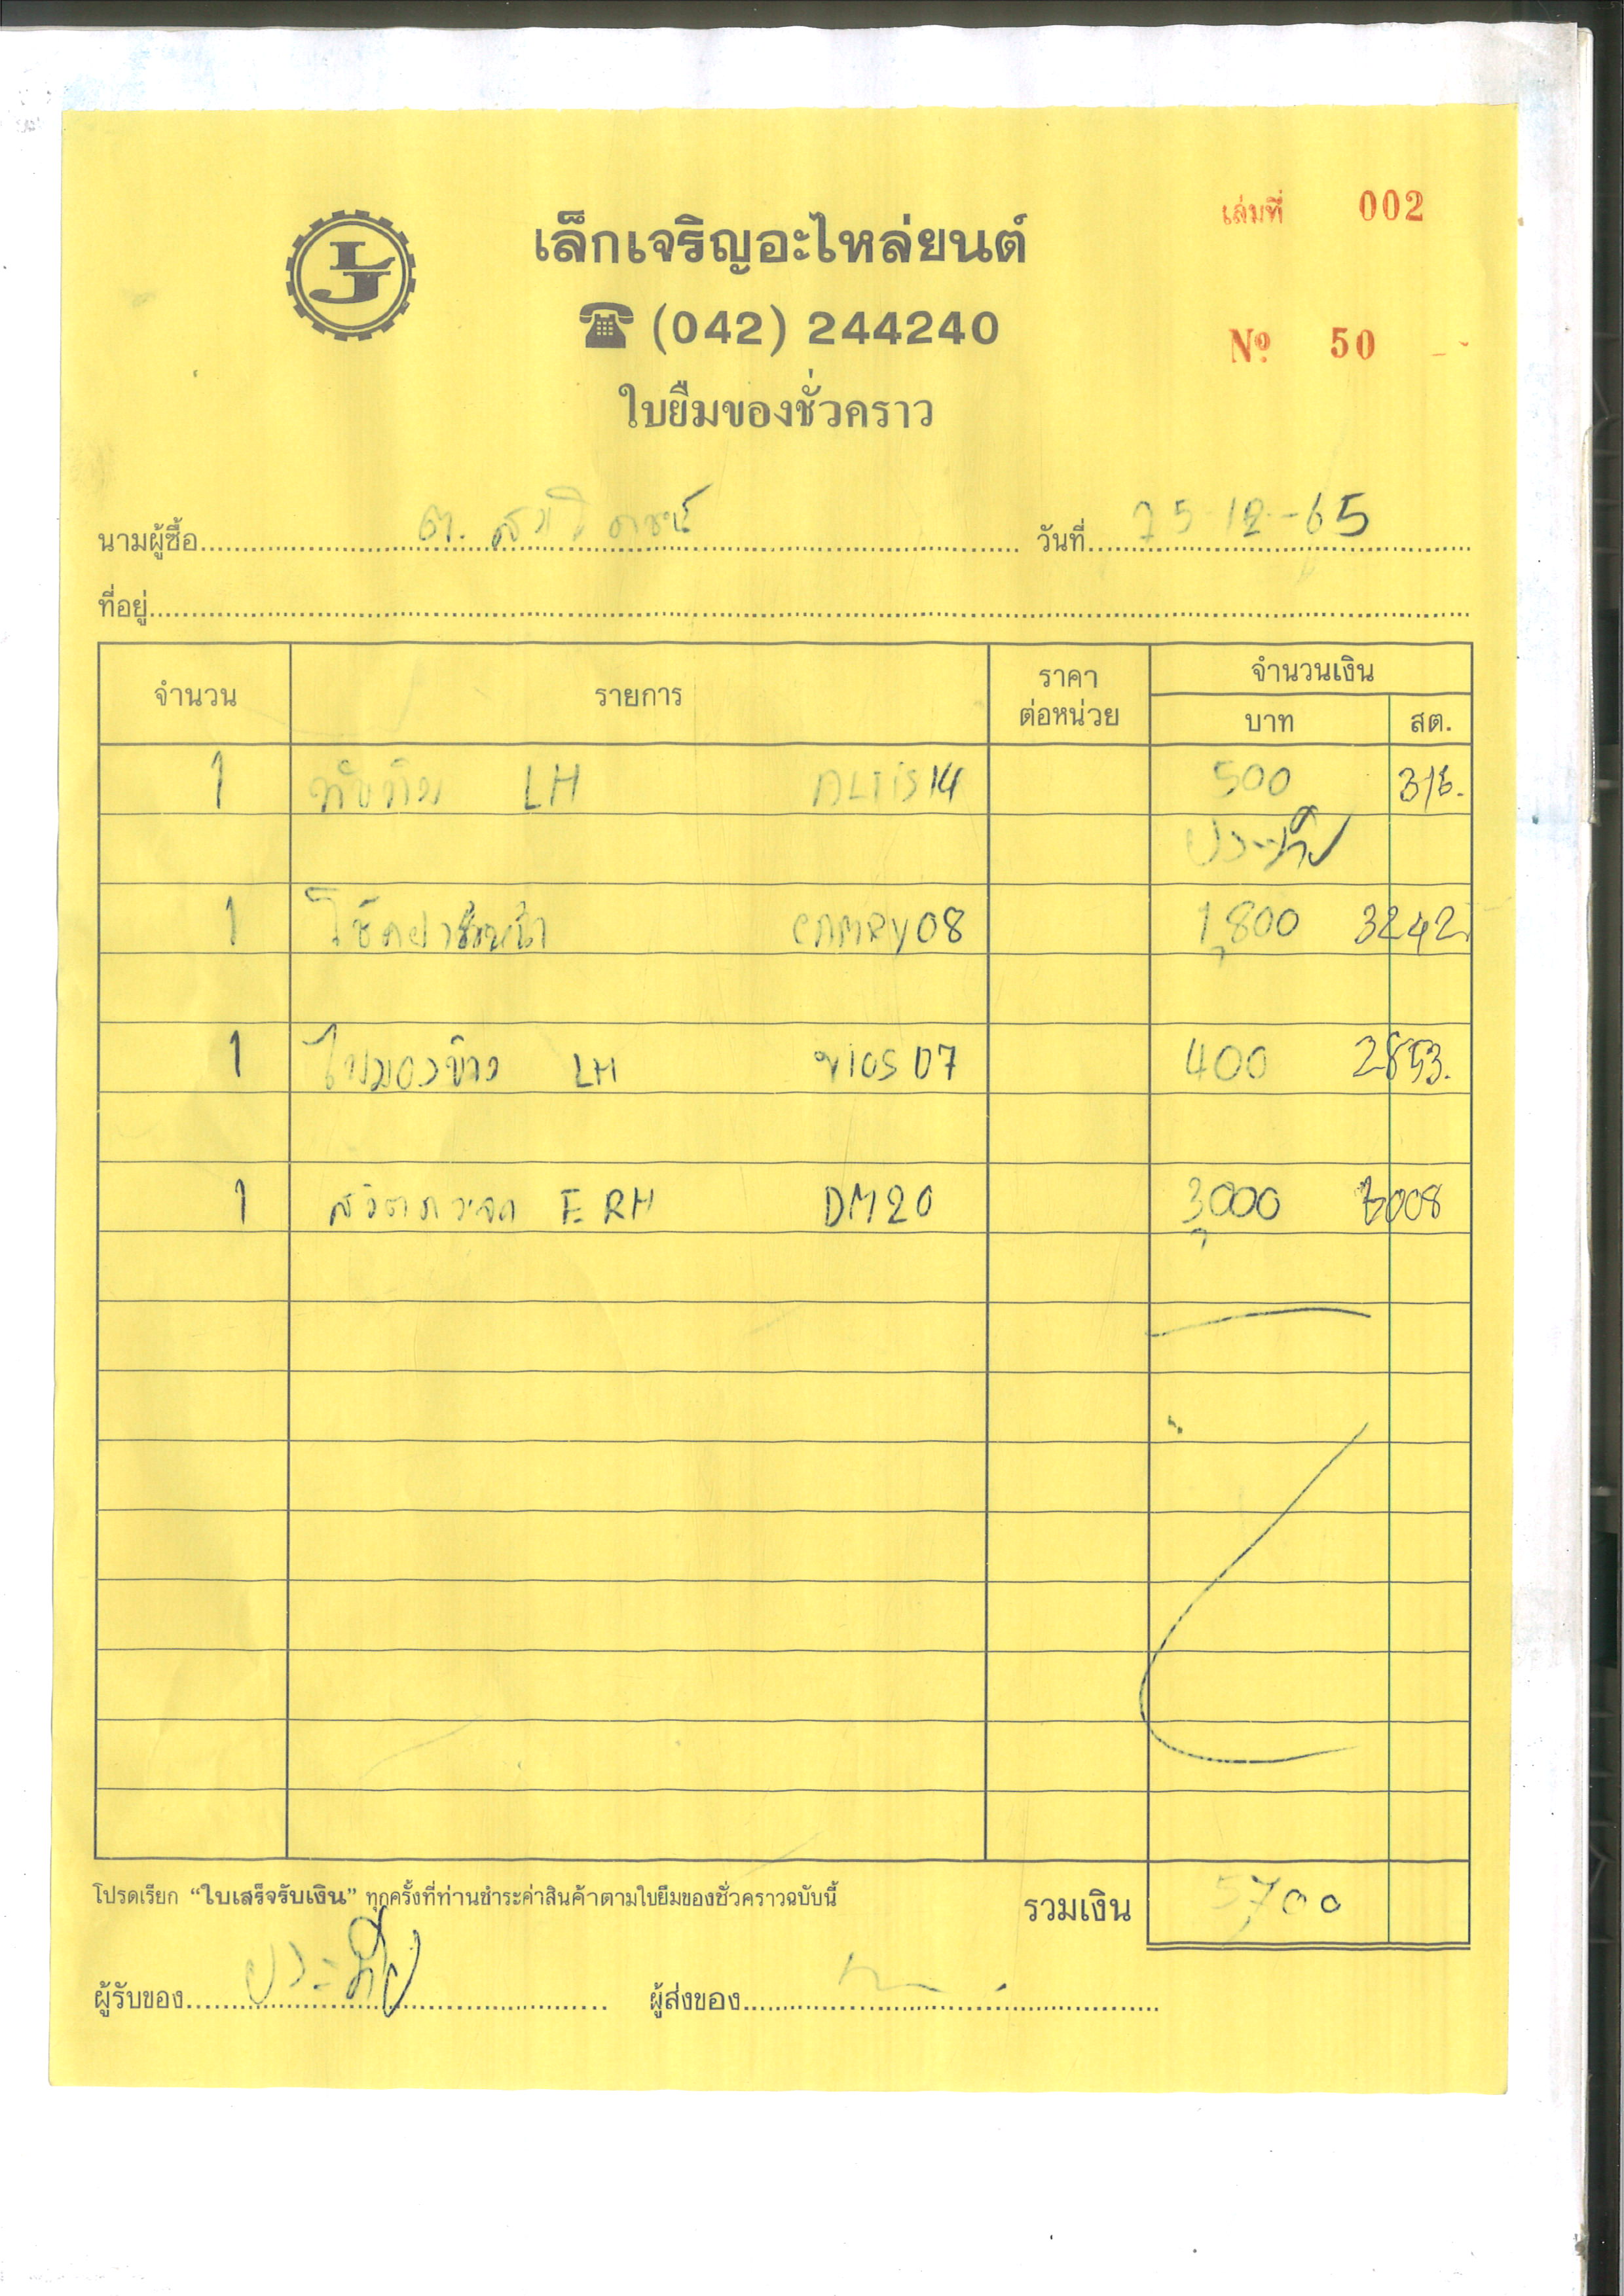 เล่มที่ 002
LJ
เล็กเจริญอะไหล่ยนต์
☎ (042) 244240
Nº 50
ใบยืมของชั่วคราว
นามผู้ซื้อ วันที่ 25-12-65
ที่อยู่
จำนวน รายการ ราคาต่อหน่วย จำนวนเงิน
บาท สต.
1 ทับทิม LH ALTIS 14 500
ประทีป
1 โช๊คฝา CAMRY 08 1,800 3242
1 ไฟมองข้าง LH VIOS 07 400 2853.
1 F RH DM20 3,000 3008
โปรดเรียก “ใบเสร็จรับเงิน” ทุกครั้งที่ท่านชำระค่าสินค้าตามใบยืมของชั่วคราวฉบับนี้
รวมเงิน 5,700
ผู้รับของ ประทีป ผู้ส่งของ